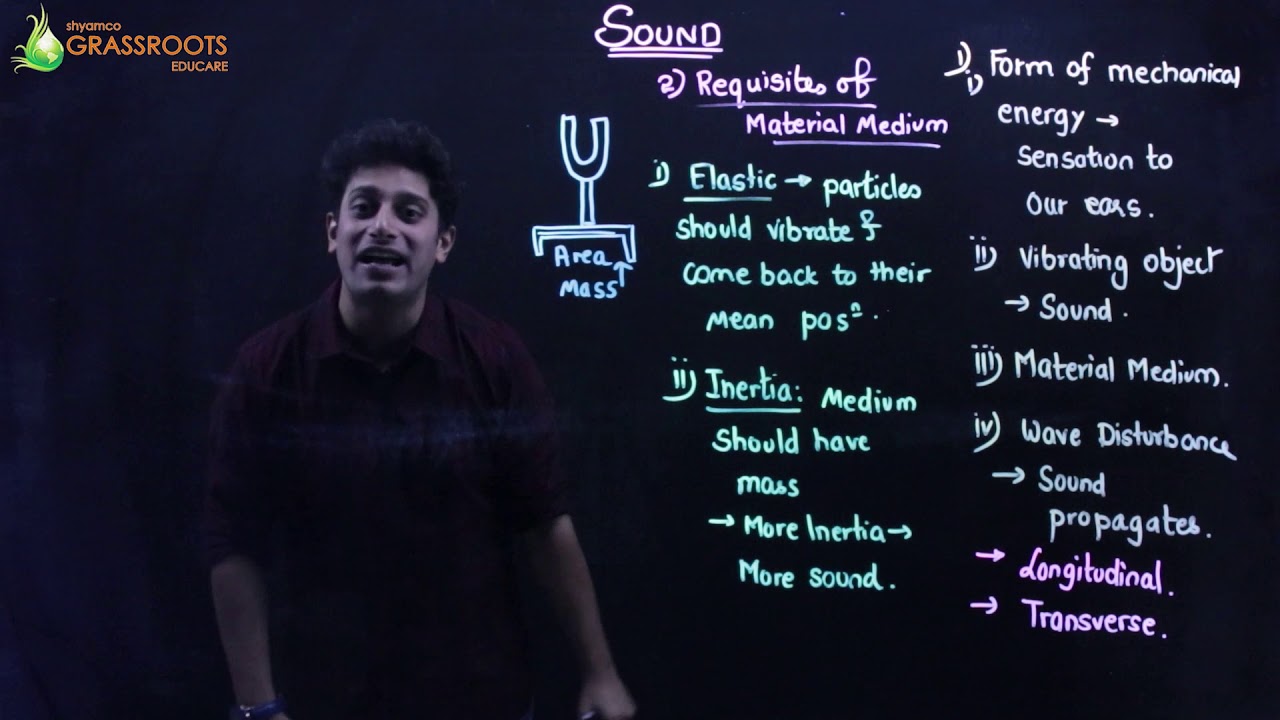 shyamco
GRASSROOTS
EDUCARE
SOUND
2) Requisites of
Material Medium
i) Elastic → particles
should vibrate &
come back to their
mean posⁿ.
ii) Inertia: Medium
should have
mass
→ More Inertia →
More sound.
Area
Mass ↑
1) i) Form of mechanical
energy →
sensation to
our ears.
ii) Vibrating object
→ Sound.
iii) Material Medium.
iv) Wave Disturbance
→ Sound
propagates.
→ Longitudinal.
→ Transverse.